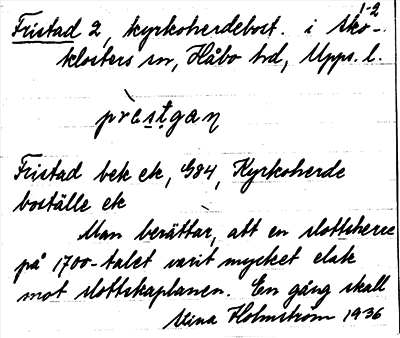 1-2
Fristad 2, kyrkoherdebost. i Sko-
klosters sn, Håbo hd, Upps. l.
prèstgaη
Fristad bek ek, G84, Kyrkoherde
boställe ek
Man berättar, att en slottsherre
på 1700-talet varit mycket elak
mot slottskaplanen. En gång skall
Stina Holmström 1936